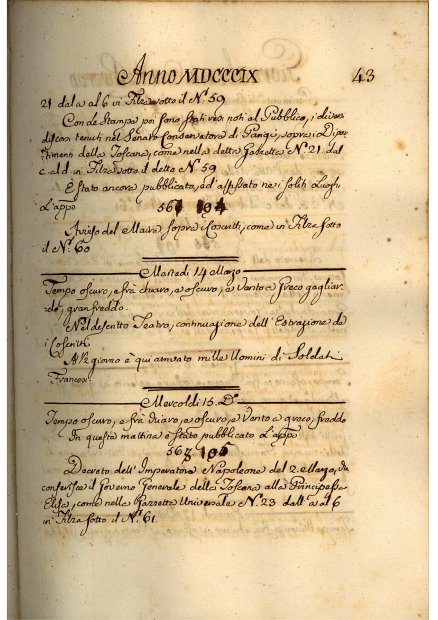 Anno MDCCCIX 43
21 dal a al 6 in Filza sotto il N.º 59
Con le Stampe poi sono stati resi noti al Pubblico, i diversi
discorsi tenuti nel Senato Conservatore di Parigi, sopra i Dipar-
timenti della Toscana, come nella detta Gazzetta N.º 21. dal
c. al d. in Filza sotto il detto N.º 59
E stato ancora pubblicato, ed affissato nei soliti Luoghi
L'app.º
104
Avviso del Maire sopra i Coscritti, come in Filza sotto
il N.º 60
Martedì 14 Marzo
Tempo oscuro, e frà chiaro, e oscuro, e Vento a Greco gagliar-
do, gran freddo.
Nel descritto Teatro, continuazione dell'Estrazione de
i Coscritti.
giorno è quì arrivato mille Uomini di Soldati
Francesi.
Mercoldì 15. D.º
Tempo oscuro, e frà chiaro, e oscuro, e Vento a greco, freddo
In questa mattina è stato pubblicato L'app.º
105
Decreto dell'Imperatore Napoleone del 2. Marzo, che
conferisce il Governo Generale della Toscana alla Principessa
Elisa, come nella Gazzetta Universale N.º 23 dall'a al 6
in Filza sotto il N.º 61.